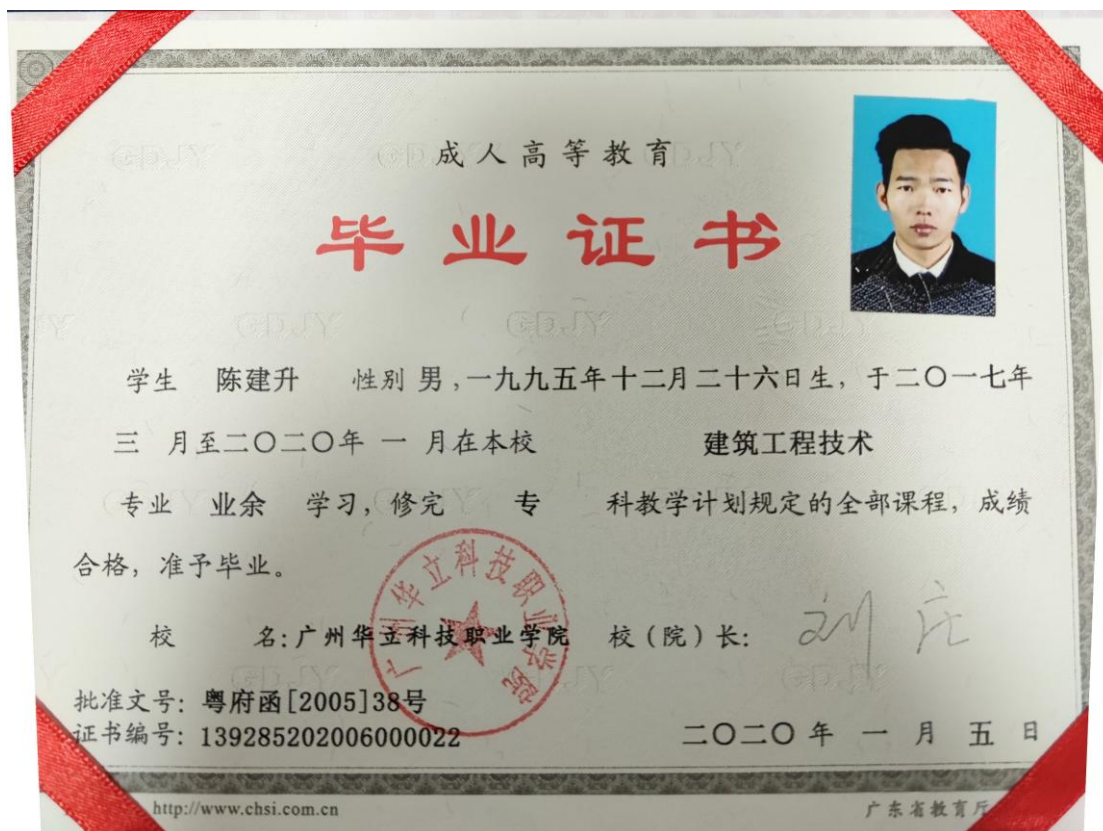 成人高等教育
毕业证书
学生 陈建升 性别 男,一九九五年十二月二十六日生，于二〇一七年
三 月至二〇二〇年 一 月在本校 建筑工程技术
专业 业余 学习，修完 专 科教学计划规定的全部课程，成绩
合格，准予毕业。
广州华立科技职业学院
校 名:广州华立科技职业学院 校(院)长: 刘
批准文号: 粤府函[2005]38号
证书编号: 139285202006000022 二〇二〇年 一 月 五 日
http://www.chsi.com.cn 广东省教育厅